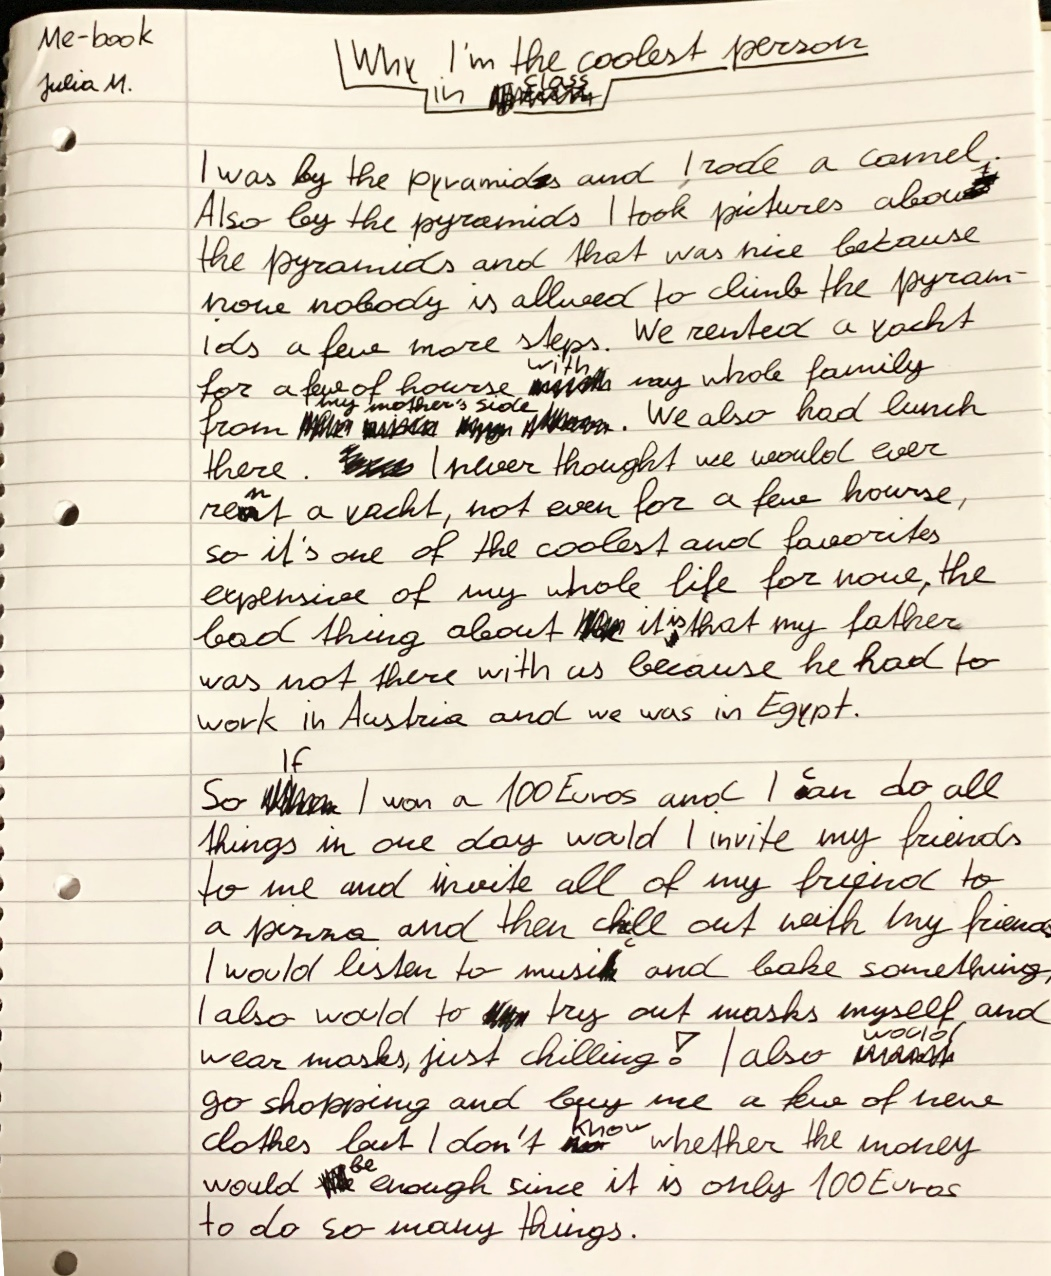 Me-book
Julia M.
Why I'm the coolest person
in class
I was by the pyramids and I rode a camel.
Also by the pyramids I took pictures about
the pyramids and that was nice because
nove nobody is alluved to climb the pyram-
ids a few more steps. We rented a yacht
for a few of hourse with my whole family
from my mother's side. We also had lunch
there. I never thought we would ever
rent a yacht, not even for a few hourse,
so it's one of the coolest and favorites
expensive of my whole life for nove, the
bad thing about it is that my father
was not there with us because he had to
work in Austria and we was in Egypt.
So If I won a 100 Euros and I can do all
things in one day would I invite my friends
to me and invite all of my friend to
a pizza and then chill out with my friends
I would listen to music and bake something,
I also would to try out masks myself and
wear masks, just chilling! I also would
go shopping and buy me a few of neve
clothes but I don't know whether the money
would be enough since it is only 100 Euros
to do so many things.